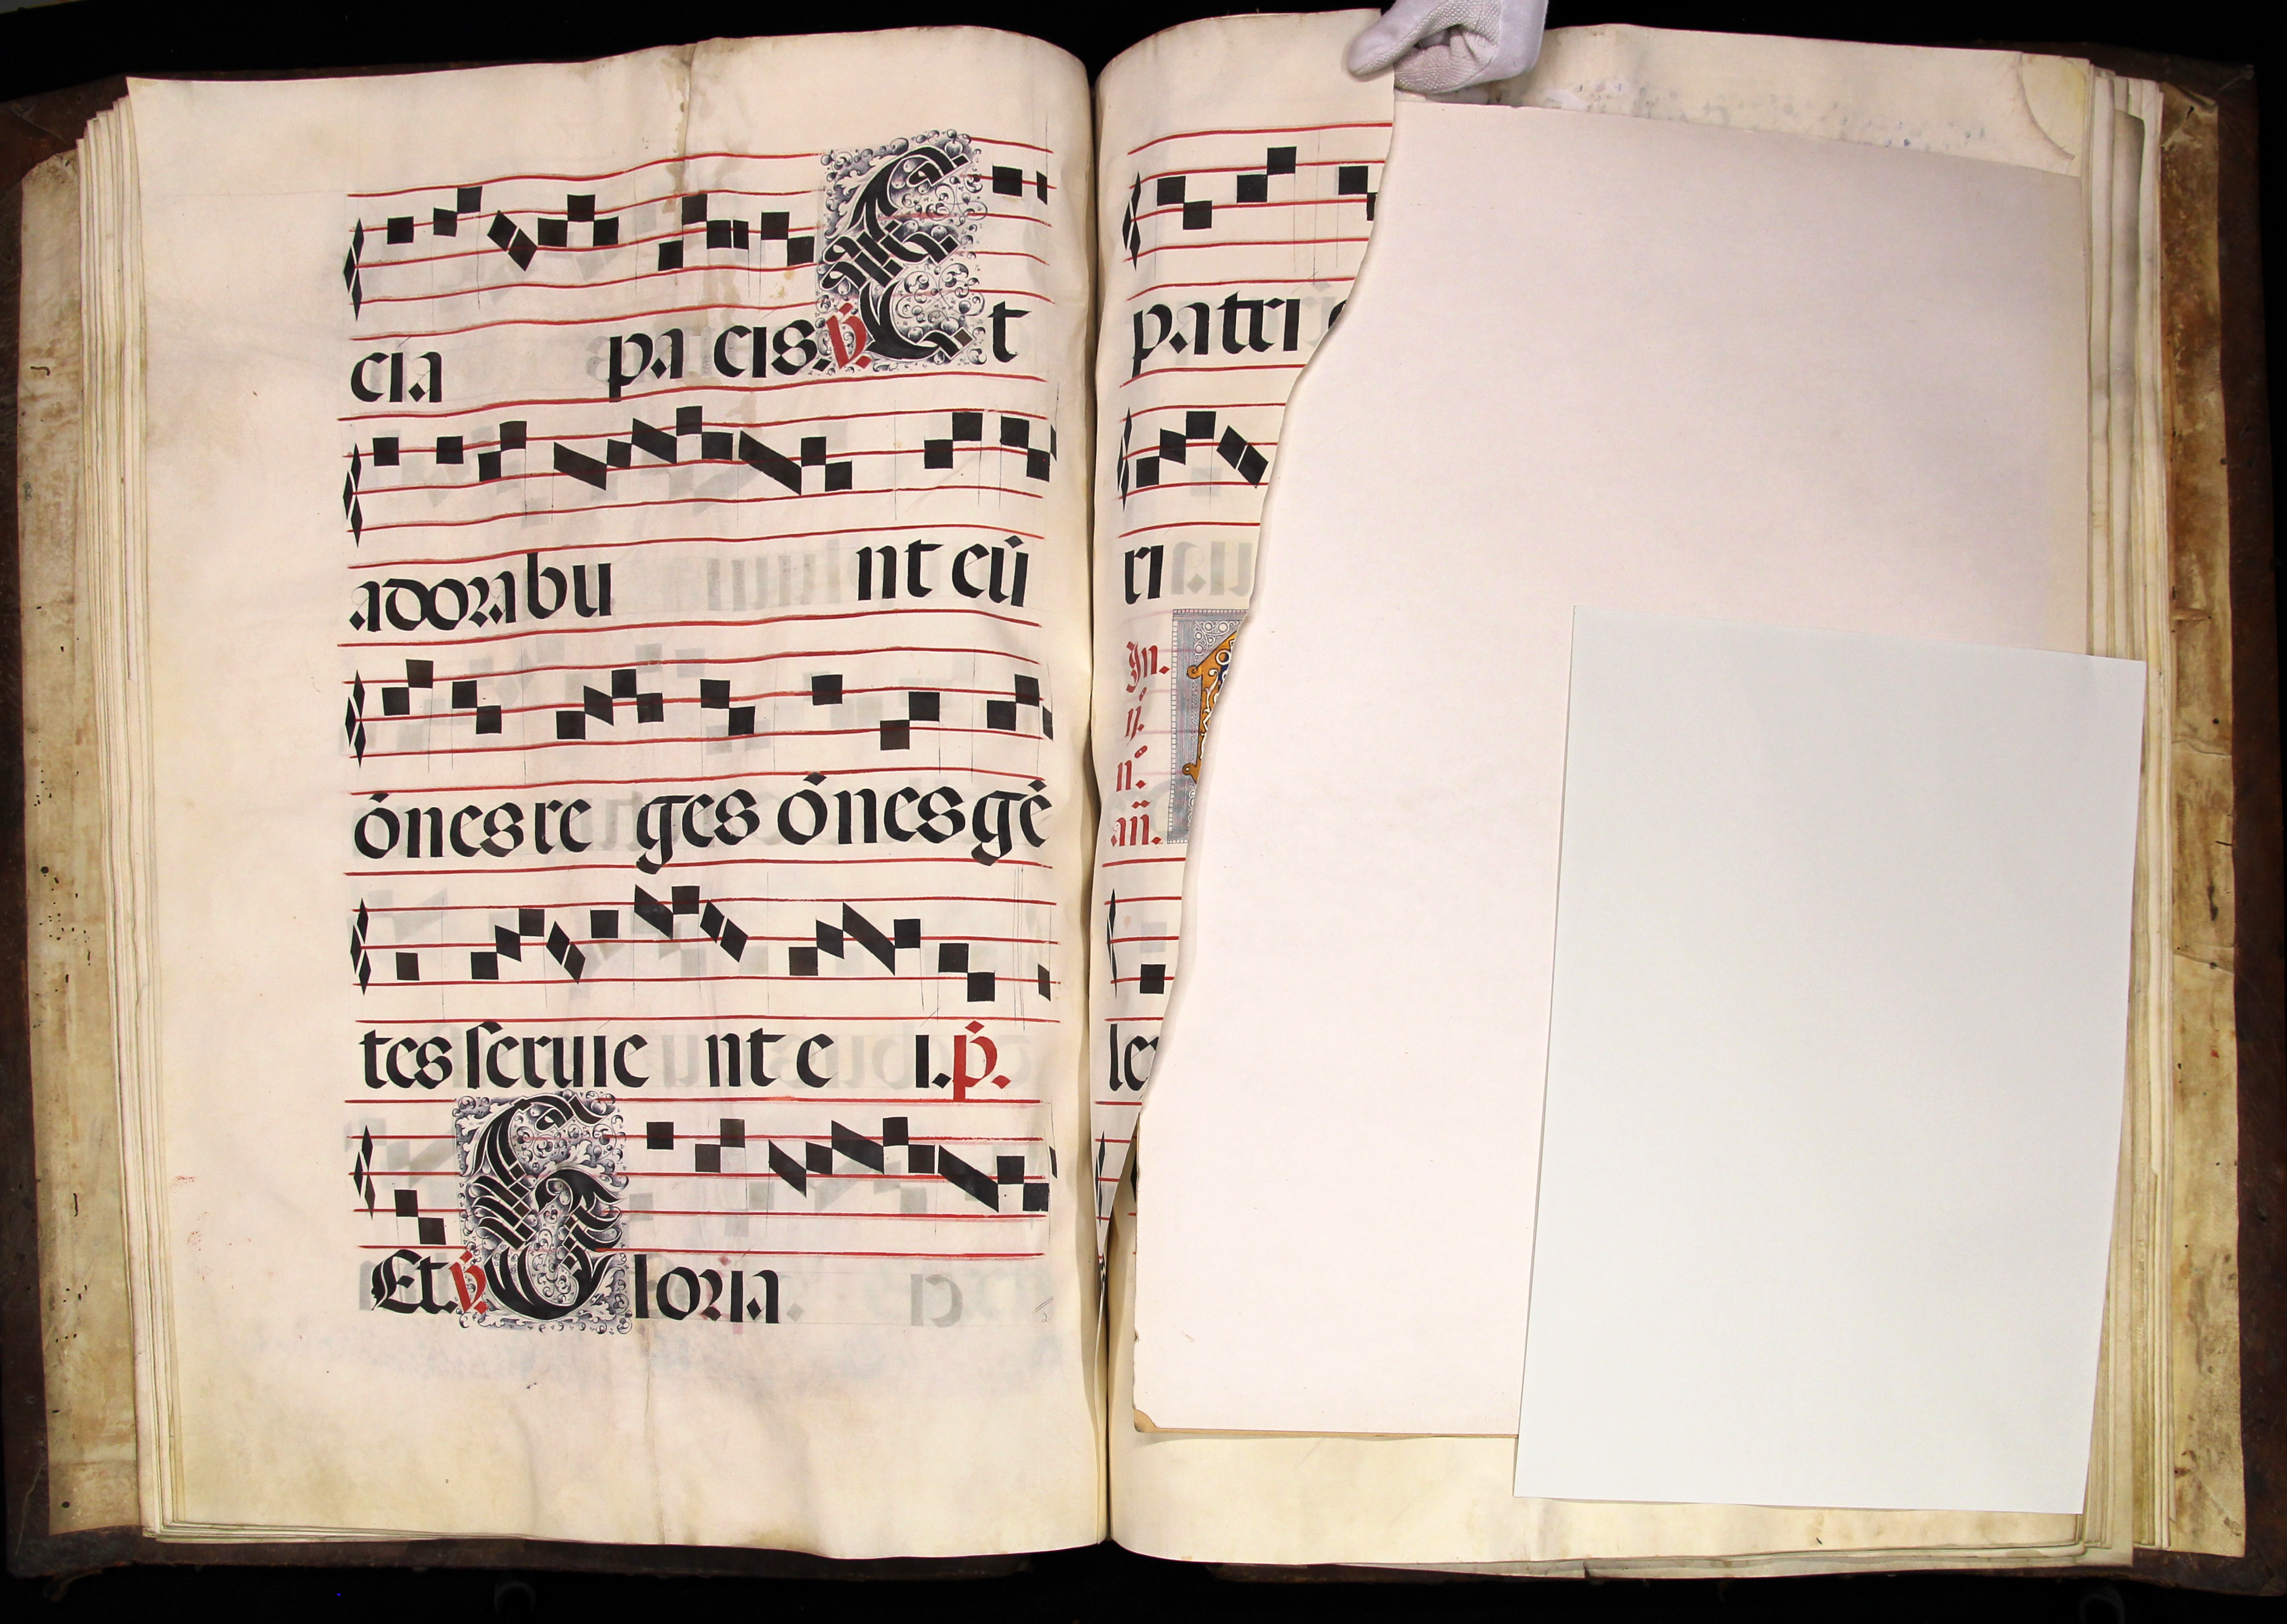 cia pa cis. ℣. Et
adorabu nt eū
ōnes re ges ōnes gē
tes ſeruie nt e i. p̄.
Et. ℣. Gloria
patri
tri
In.
ij.
n̄.
an̄.
le